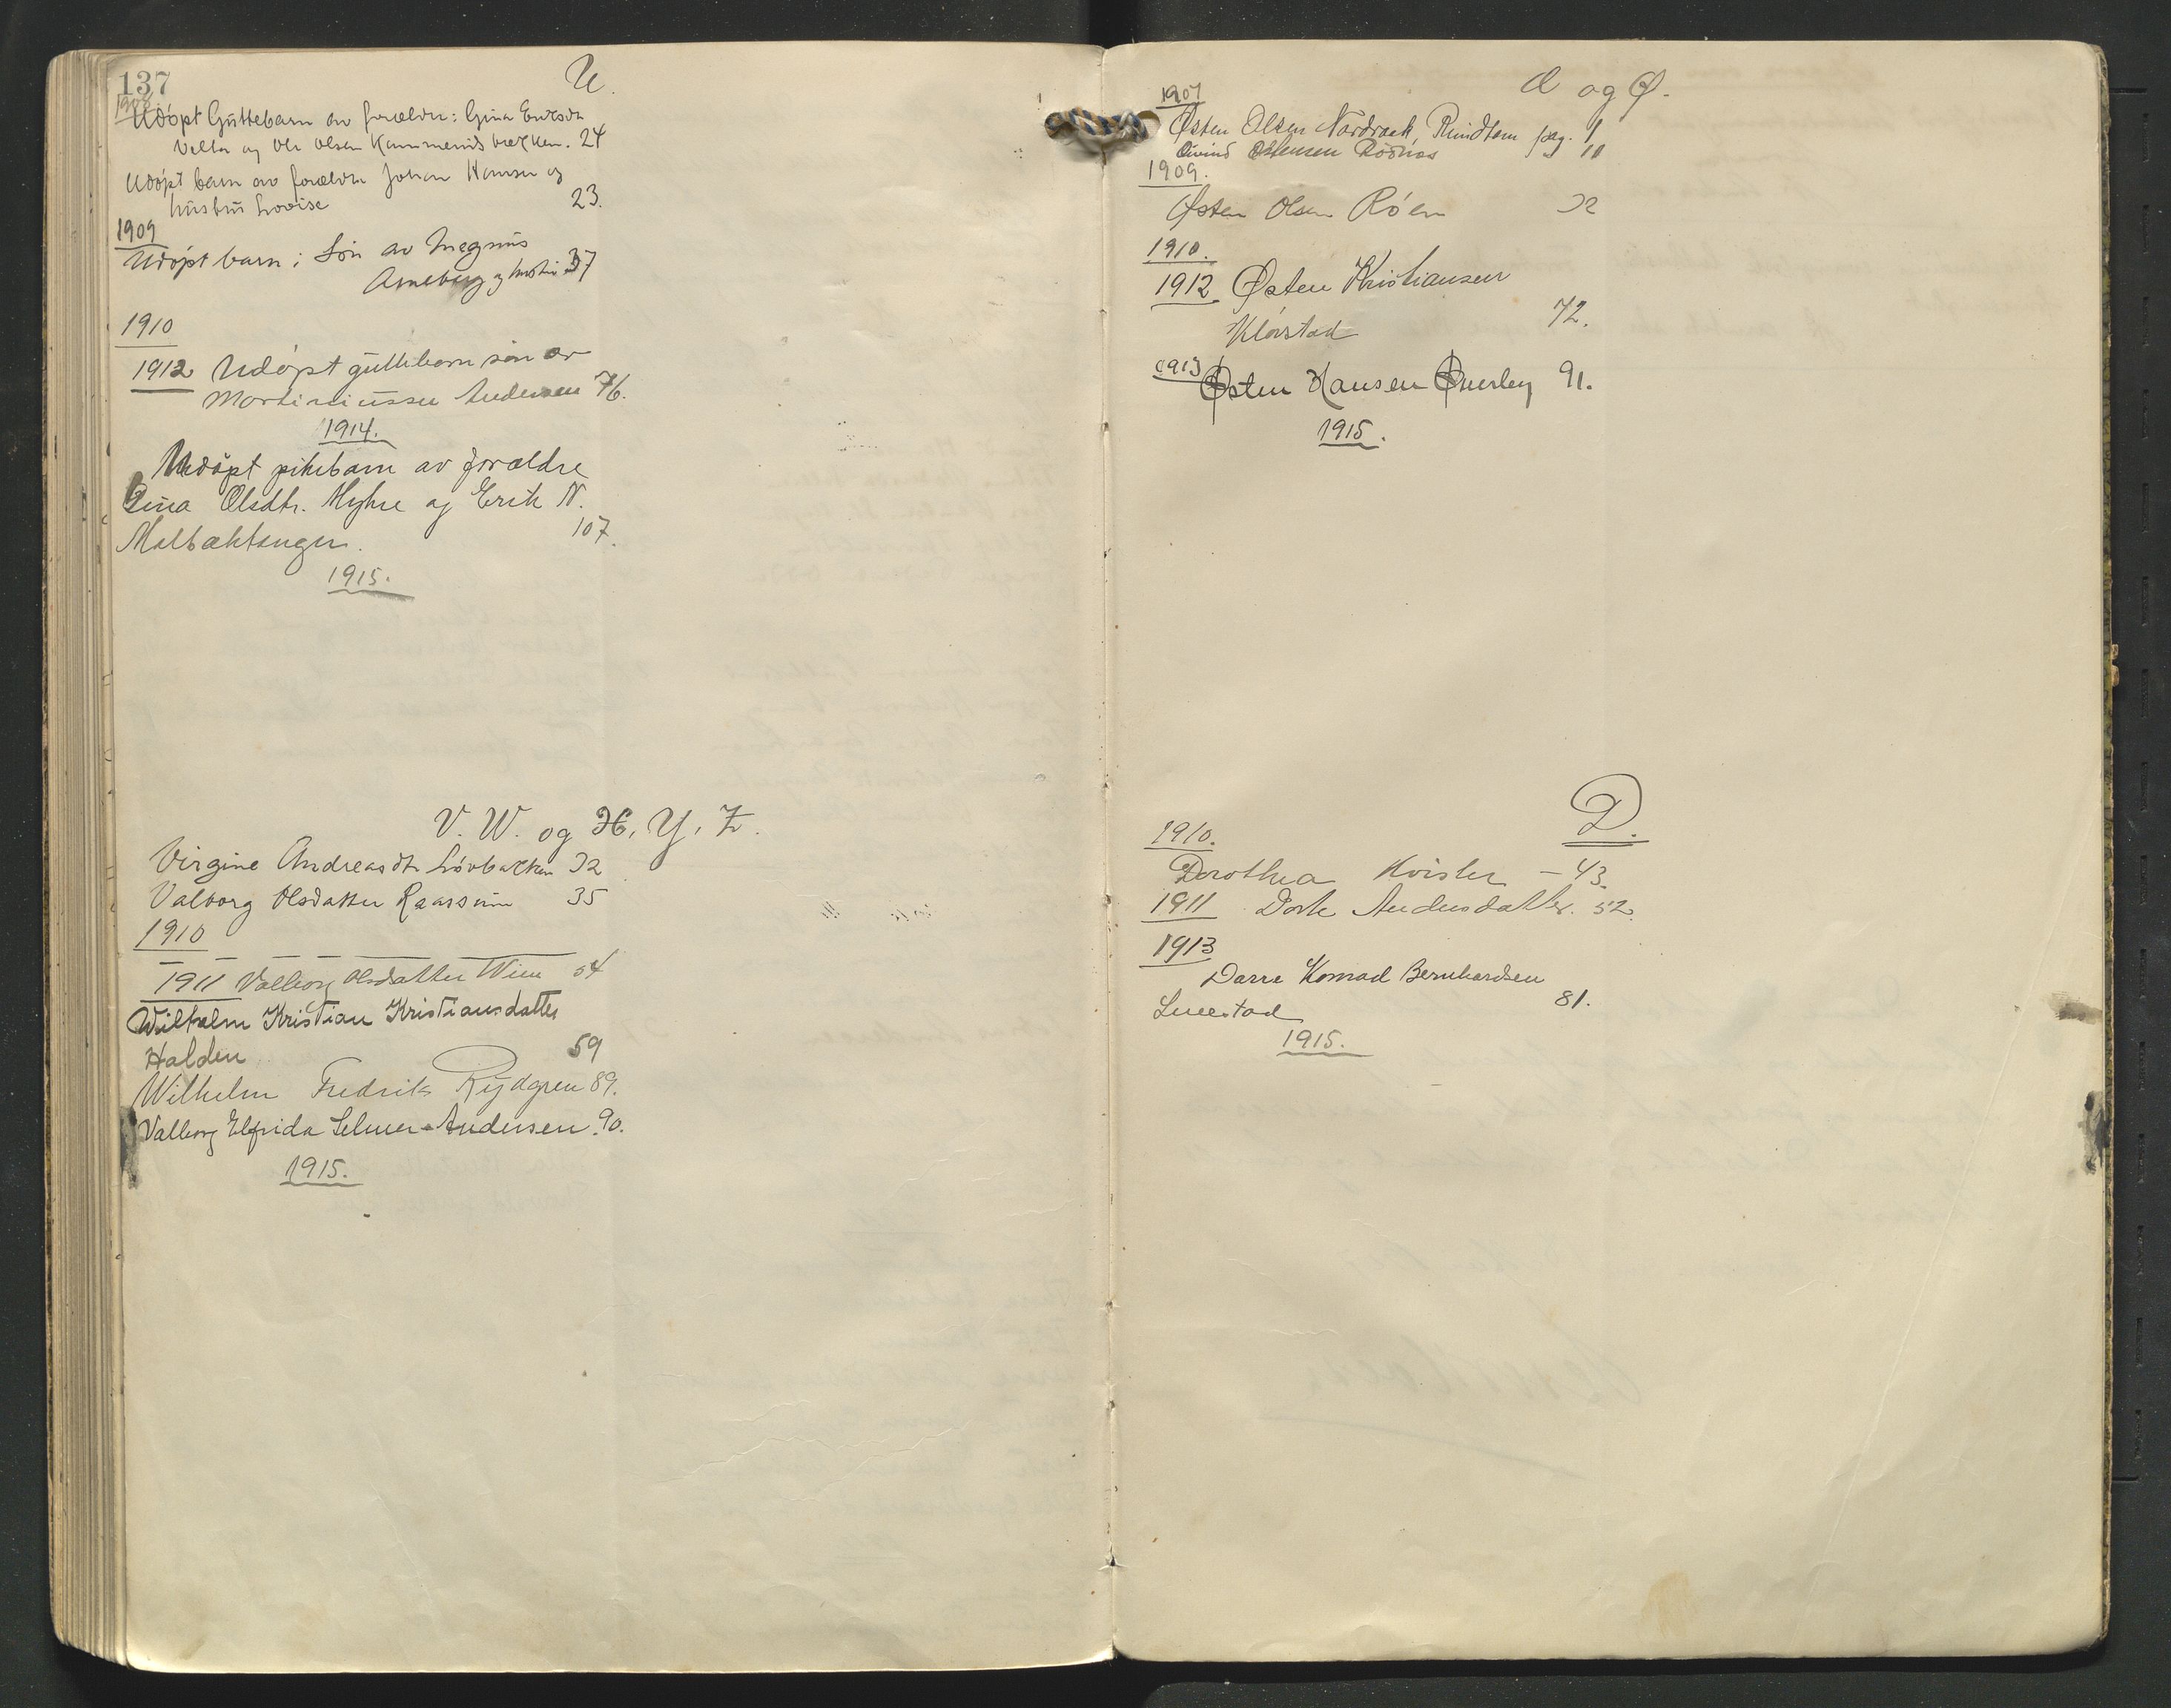 137
U.
1908
Udöpt Guttebarn av forældre: Gina
og Ole Olsen 24
Udöpt barn av forældre Johan Hansen og
hustru Lovise 23.
1909
Udöpt barn: Sön av Magnus
Arneberg og hustru 37
1910
1912 Udöpt guttebarn sön av
Andersen 76.
1914.
Udöpt pikebarn av forældre
Olsdtr. Myhre og Erik N.
107.
1915.
V. W. og X, Y, Z.
Virgine Andreasdtr Lövbakken 32
Valborg Olsdatter Raassum 35
1910
1911 Valborg Olsdatter Wien 54
Wilhelm Kristian Kristiansdatter
Halden 59
Wilhelm Fredrik Rydgren 89.
Valborg Elfrida Selmer-Andersen. 90.
1915.
Æ og Ø.
1907
Østen Olsen pag. 1
Øivind Østensen 11
1909.
Østen Olsen Röen 32
1910.
1912 Østen Kristiansen
Klövstad 72.
1913
Østen Hansen Øverby 91.
1915.
D.
1910.
Dorothea Kvisler - 43.
1911 Dorte Andersdatter. 52.
1913
Konrad Bernhardsen
81.
1915.